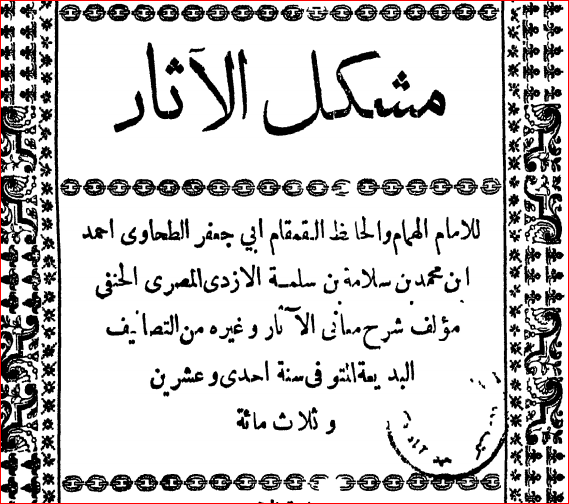 مشكل الآثار
للامام الهمام والحافظ القمقام ابي جعفر الطحاوى احمد
ابن محمد بن سلامة بن سلمسة الازدى المصرى الحنفى
مؤلف شرح معانى الآثار وغيره من التصانيف
البديعة المتوفى سنة احدى وعشرين
وثلاث مائة